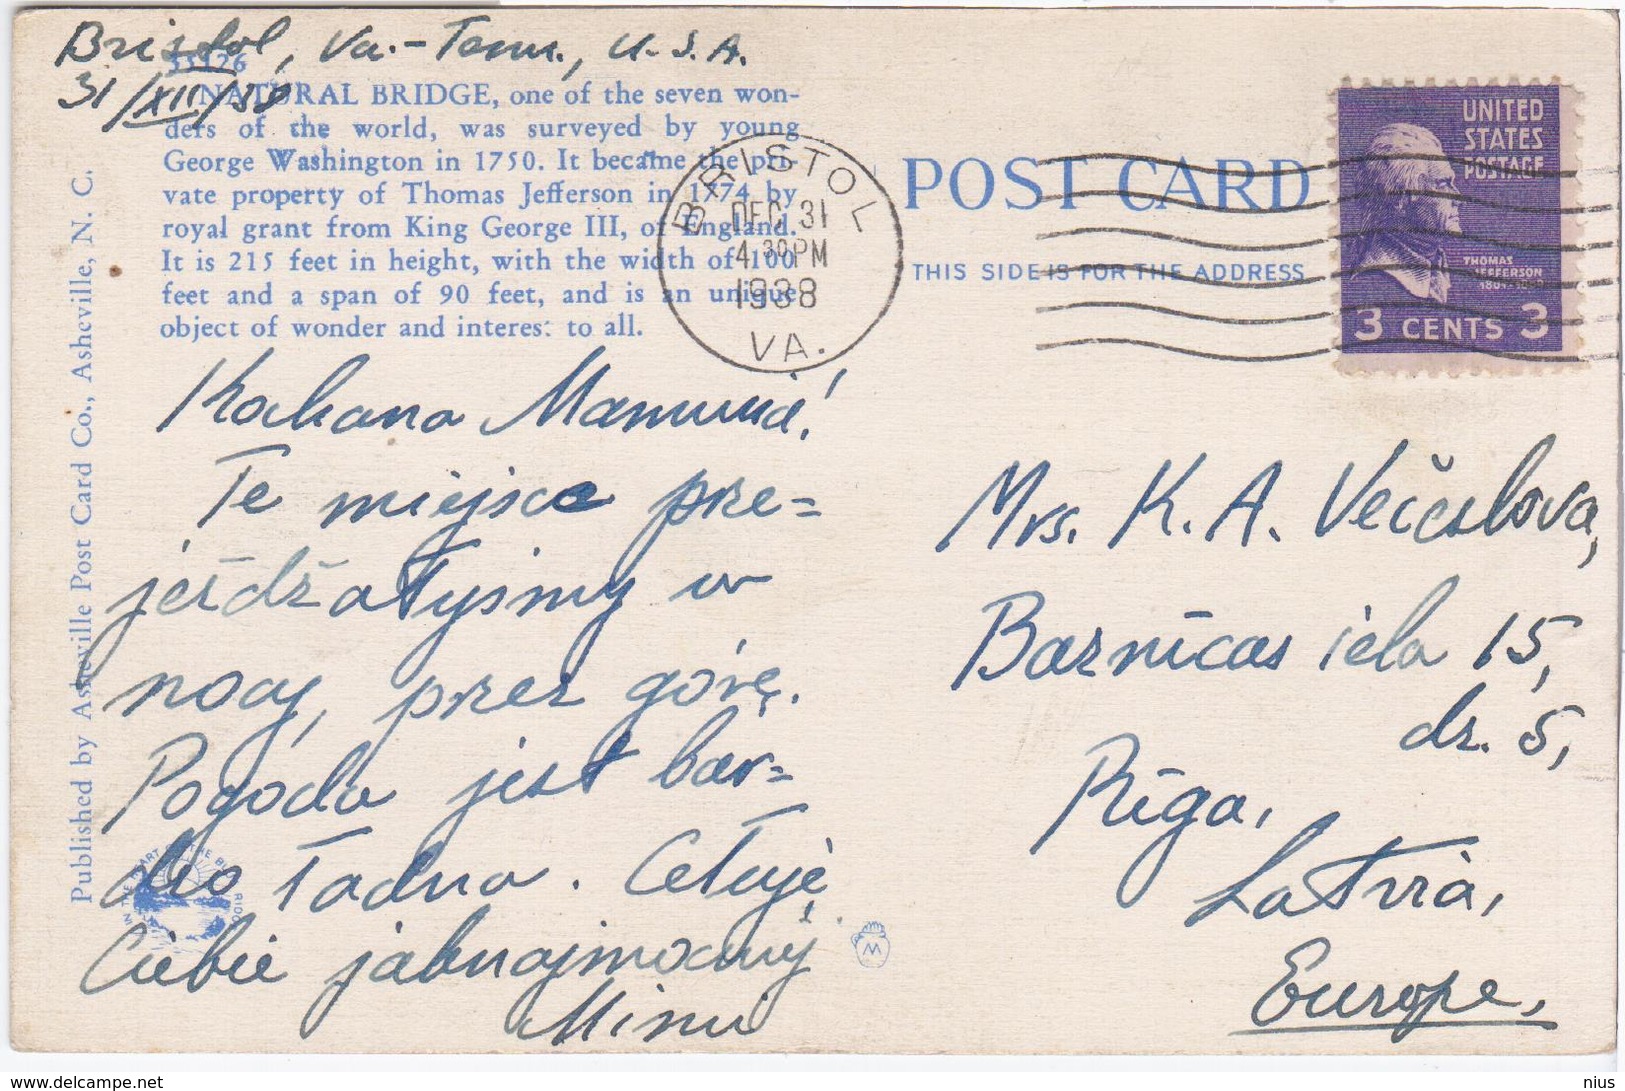 Bristol, Va.-Tenn., U.S.A.
31/XII/38
55126
NATURAL BRIDGE, one of the seven won-
ders of the world, was surveyed by young
George Washington in 1750. It became the pri-
vate property of Thomas Jefferson in 1774 by
royal grant from King George III, of England.
It is 215 feet in height, with the width of 100
feet and a span of 90 feet, and is an unique
object of wonder and interest to all.
Published by Asheville Post Card Co., Asheville, N. C.
BRISTOL
DEC 31
4 30 PM
1938
VA.
POST CARD
THIS SIDE IS FOR THE ADDRESS
UNITED
STATES
POSTAGE
THOMAS
JEFFERSON
3 CENTS 3
Kohana Mamuniá!
Te miejsce prze=
jeżdżałyśmy w
nocy, przez górę.
Pogoda jest bar=
dzo ładna. Całuję
Ciebie jaknajmocniej
Minu
Mrs. K. A. Večeslova,
Baznīcas iela 15,
dz. 5,
Rīga,
Latvia,
Europe.
W
www.delcampe.net
nius